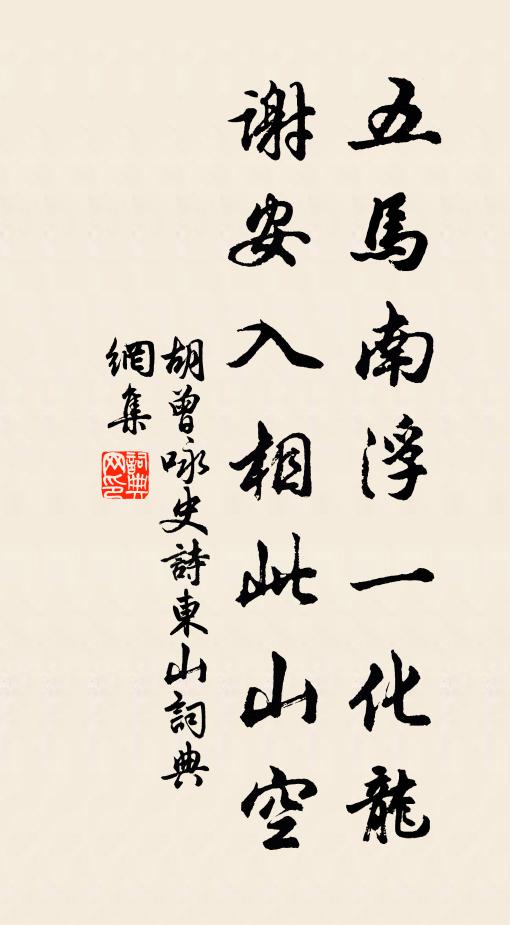 五馬南浮一化龍
謝安入相此山空
胡曾咏史詩東山詞典
網集
詞典網印